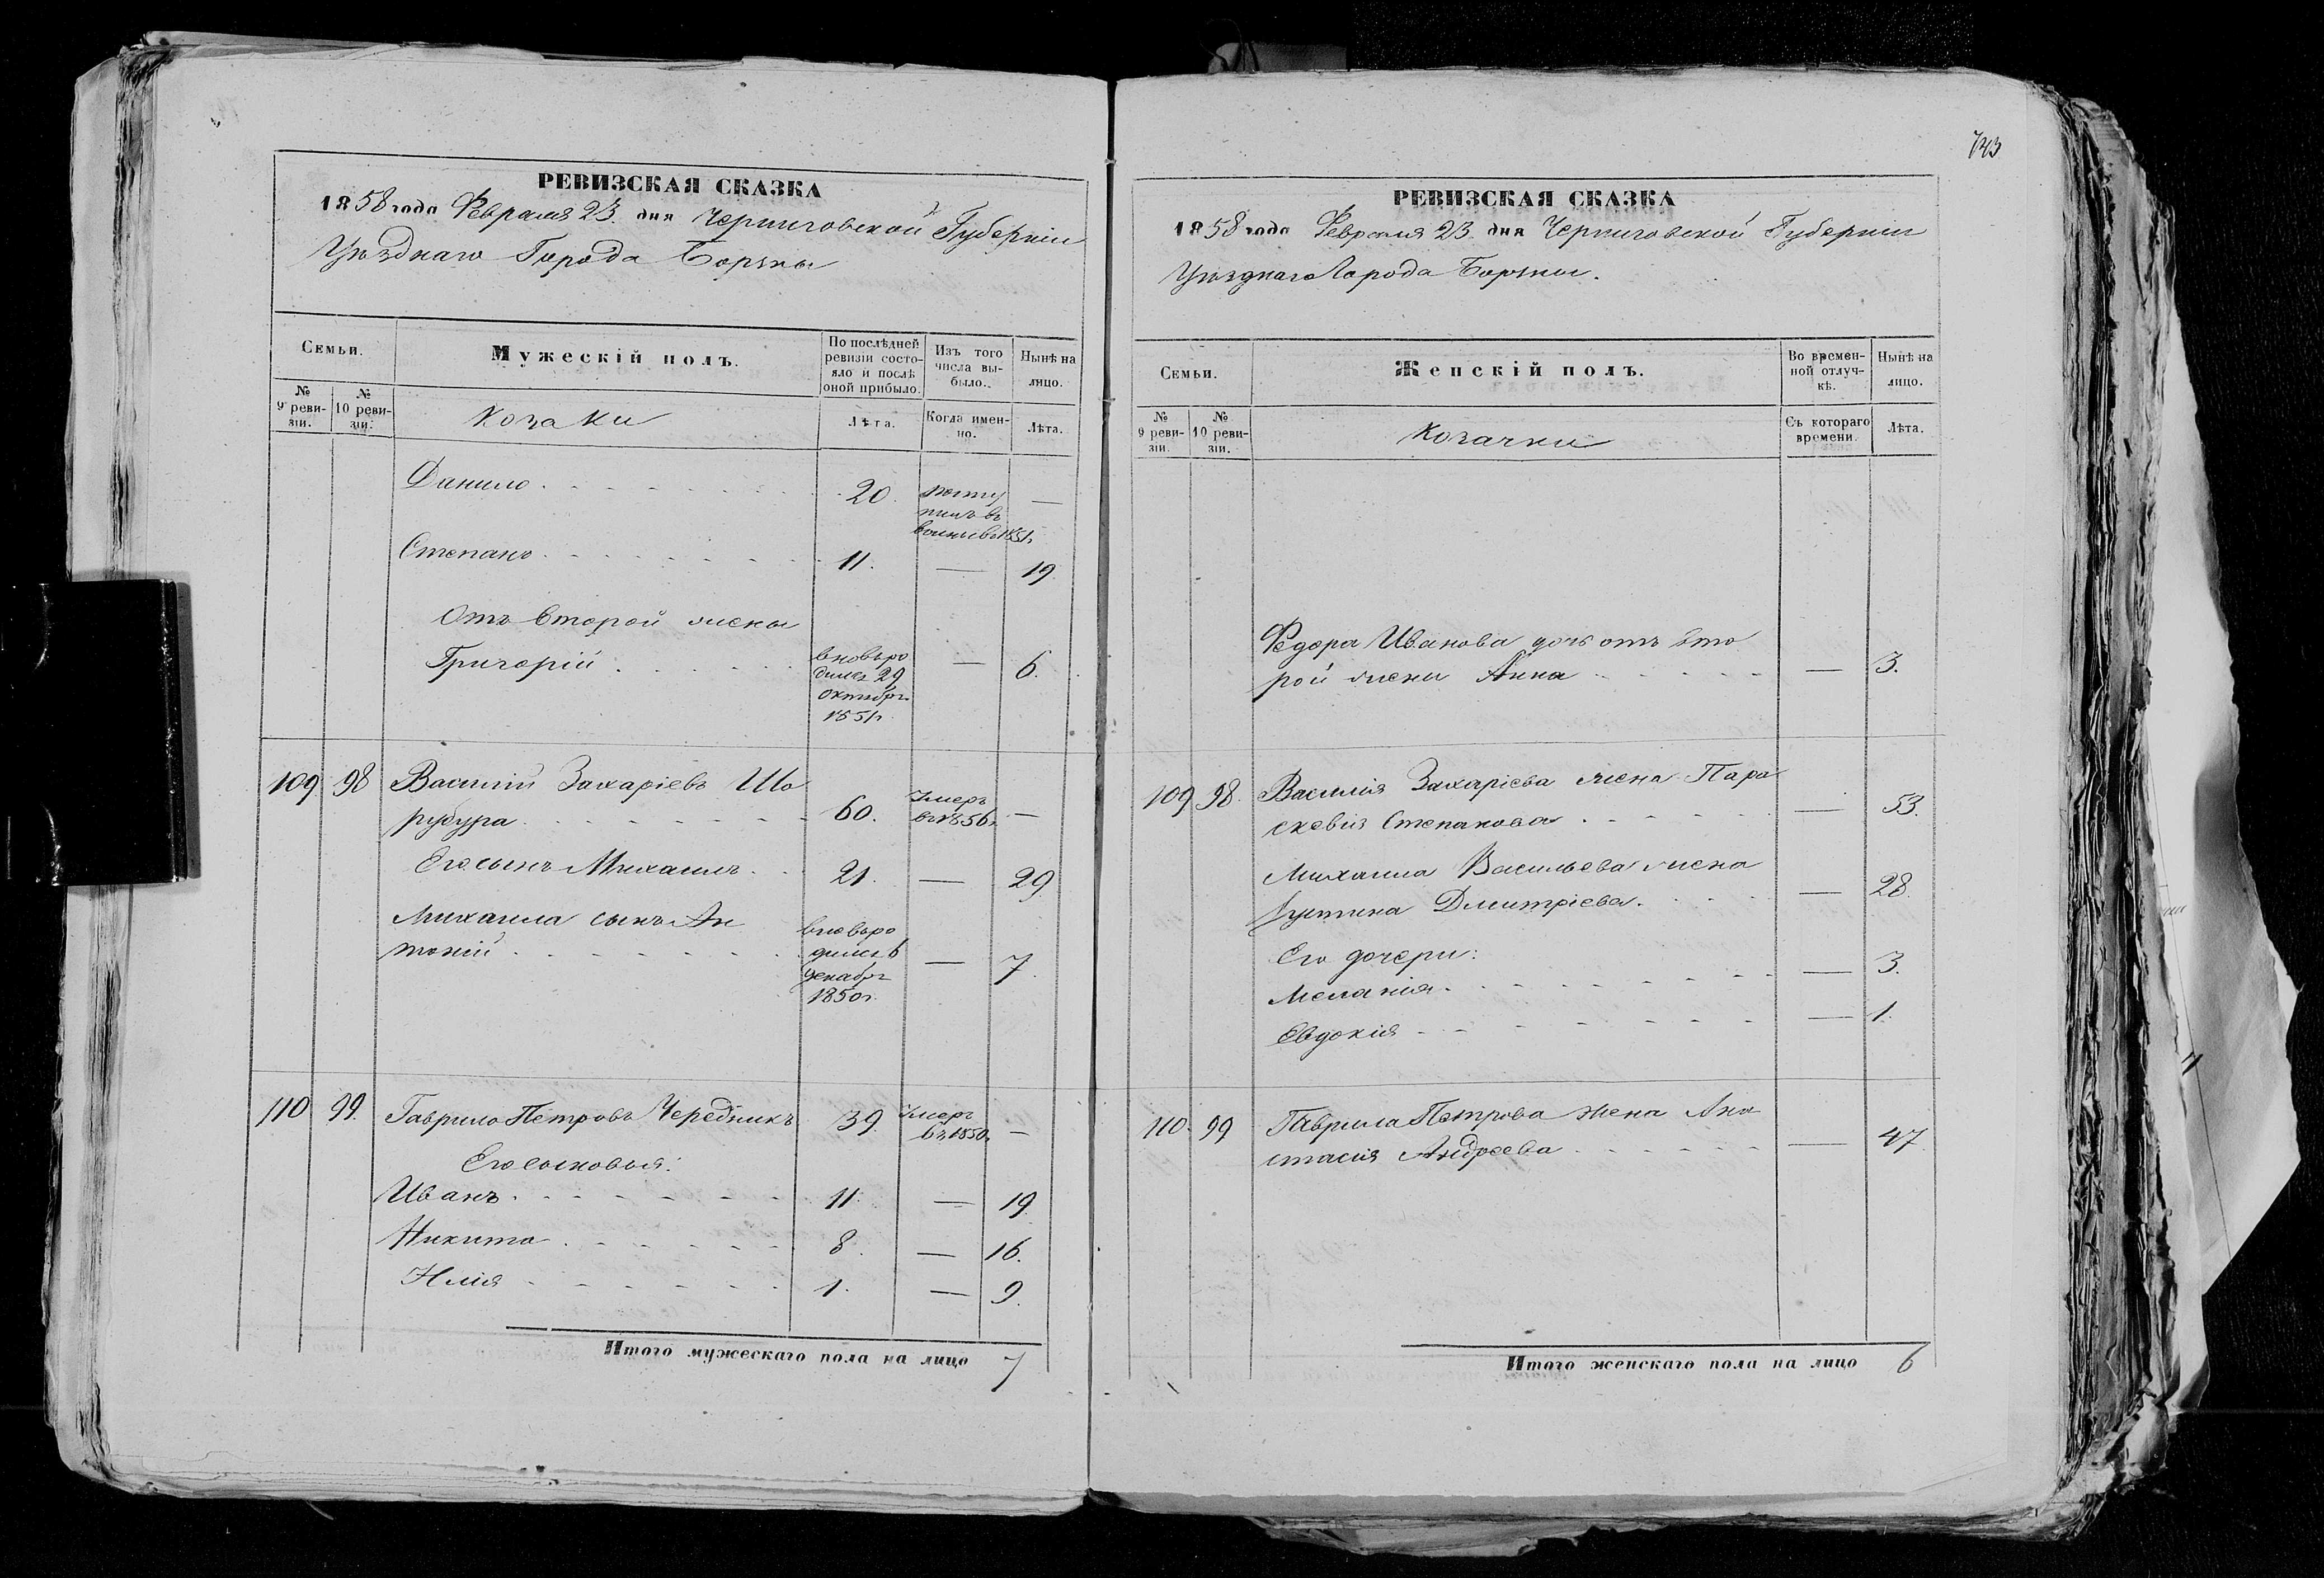 РЕВИЗСКАЯ СКАЗКА
1858 года Февраля 23 дня Черниговской Губерніи
Уѣзднаго Города Борзны
Семьи.
Мужескій полъ.
По послѣдней ревизіи состояло и послѣ оной прибыло.
Изъ того числа выбыло.
Нынѣ на лицо.
№ 9 ревизіи.
№ 10 ревизіи.
Козаки
Лѣта.
Когда именно.
Лѣта.
Данило 20. —
Степанъ 11. — 19.
Отъ второй жены
Григорій вновь родился 29 октября 1851г. — 6.
109 98 Василій Захаріевъ Ша
рубура 60. Умеръ въ 1856г. —
Его сынъ Михаилъ 21. — 29.
Михаила сынъ Ан
тоній вновь родился 6 декабря 1850г. — 7.
110 99. Гаврило Петровъ Чередникъ 39. Умеръ въ 1850г. —
Его сыновья:
Иванъ 11. — 19.
Никита 8. — 16.
Илія 1. — 9.
Итого мужескаго пола на лицо 7
743
РЕВИЗСКАЯ СКАЗКА
1858 года Февраля 23 дня Черниговской Губерніи
Уѣзднаго Города Борзны.
Семьи.
Женскій полъ.
Во временной отлучкѣ.
Нынѣ на лицо.
№ 9 ревизіи.
№ 10 ревизіи.
Козачки
Съ котораго времени.
Лѣта.
Федора Иванова дочь отъ вто
рой жены Анна — 3.
109 98. Василія Захаріева жена Пара
скевія Степанова — 53.
Михаила Васильева жена
Дмитріева — 28.
Его дочери:
Меланія — 3.
Евдокія — 1.
110. 99 Гаврила Петрова жена Ана
стасія Андреева — 47
Итого женскаго пола на лицо 6